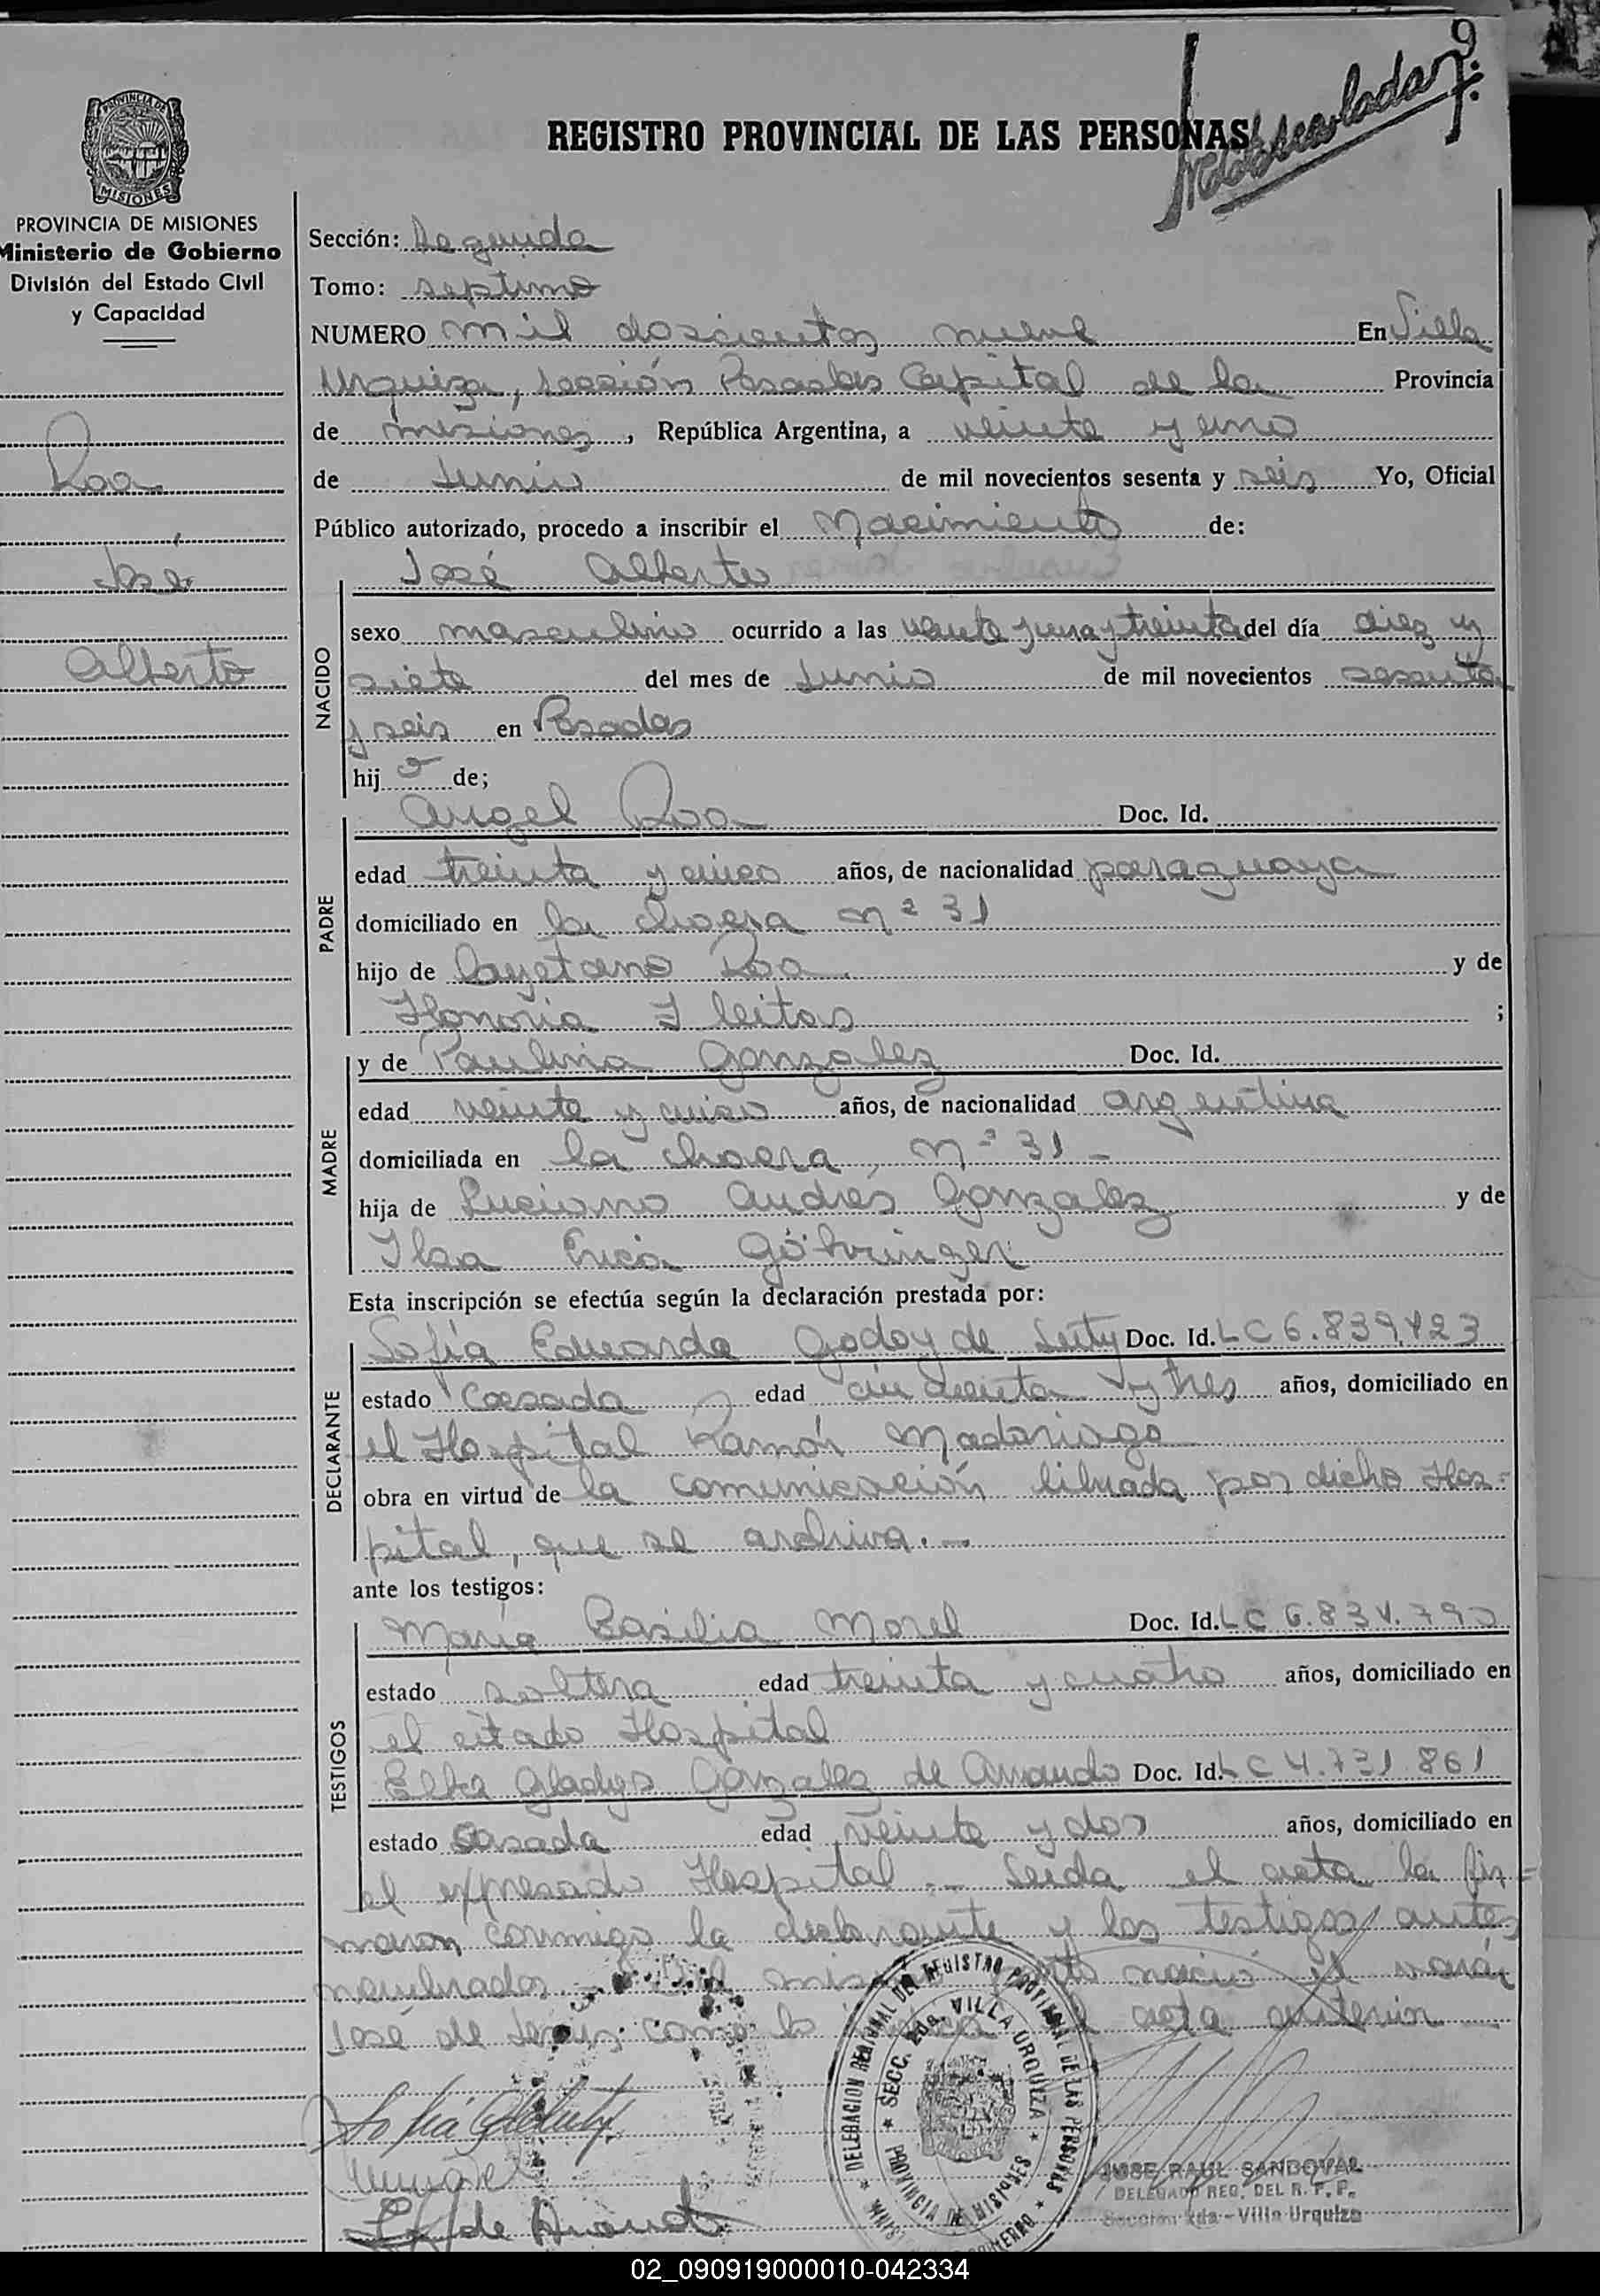 9
PROVINCIA DE
MISIONES
REGISTRO PROVINCIAL DE LAS PERSONAS
PROVINCIA DE MISIONES
Ministerio de Gobierno
División del Estado Civil
y Capacidad
Roa
José
Alberto
Sección: Segunda
Tomo: septimo
NUMERO mil doscientos nueve En Villa
Urquiza, sección Posadas Capital de la Provincia
de misiones, República Argentina, a veinte y uno
de Junio de mil novecientos sesenta y seis Yo, Oficial
Público autorizado, procedo a inscribir el Nacimiento de:
José Alberto
NACIDO
sexo masculino ocurrido a las veinte y una y treinta del día diez y
siete del mes de Junio de mil novecientos sesenta
y seis en Posadas
hijo de;
Angel Roa Doc. Id.
PADRE
edad treinta y cinco años, de nacionalidad paraguaya
domiciliado en la chacra nº 31
hijo de Cayetano Roa y de
Honoria Fleitas ;
MADRE
y de Paulina Gonzalez Doc. Id.
edad veinte y cinco años, de nacionalidad argentina
domiciliada en la chacra nº 31 -
hija de Luciano Andrés Gonzalez y de
Ilsa Erica Göhringer
Esta inscripción se efectúa según la declaración prestada por:
DECLARANTE
Sofía Eduarda Godoy de Doc. Id. LC 6.839.423
estado casada edad cincuenta y tres años, domiciliado en
el Hospital Ramón Madariaga
obra en virtud de la comunicación librada por dicho Hos=
pital, que se archiva.-
ante los testigos:
TESTIGOS
María Basilia Morel Doc. Id. LC 6.834.790
estado soltera edad treinta y cuatro años, domiciliado en
el citado Hospital
Elba Gladys Gonzalez de Doc. Id. LC 4.731.861
estado casada edad veinte y dos años, domiciliado en
el expresado Hospital.- Leida el acta la fir=
maron conmigo la declarante y los testigos antes
nombrados. mismo parto nació el varón
José de Jesús como lo acta anterior
DELEGACION REGIONAL DEL REGISTRO PROVINCIAL DE LAS PERSONAS
SECC. 2da. VILLA URQUIZA
PROVINCIA DE MISIONES
JOSE RAUL SANDOVAL
DELEGADO REG. DEL R. P. P.
Sección 2da - Villa Urquiza
02_090919000010-042334